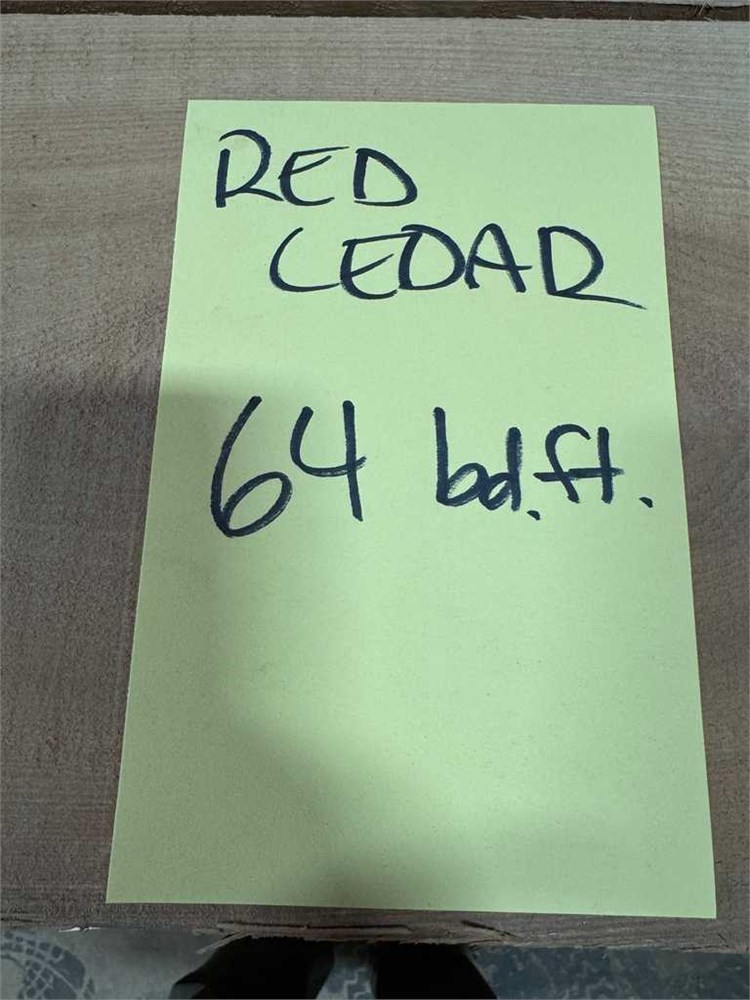 RED
CEDAR
64 bd.ft.